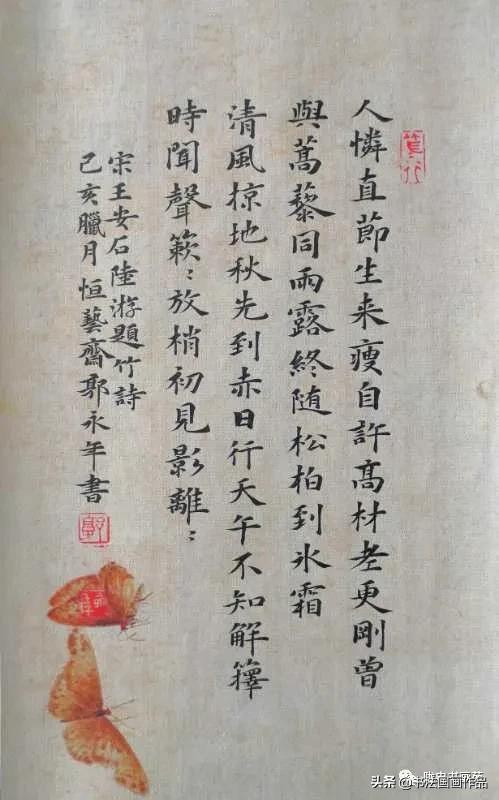 篤行
人憐直節生来瘦自許髙材老更剛曽
與蒿藜同雨露終随松柏到氷霜
清風掠地秋先到赤日行天午不知解籜
時聞聲簌〻放梢初見影離〻
宋王安石陸游題竹詩
己亥臘月恒藝齋郭永年書
头条@书法国画作品